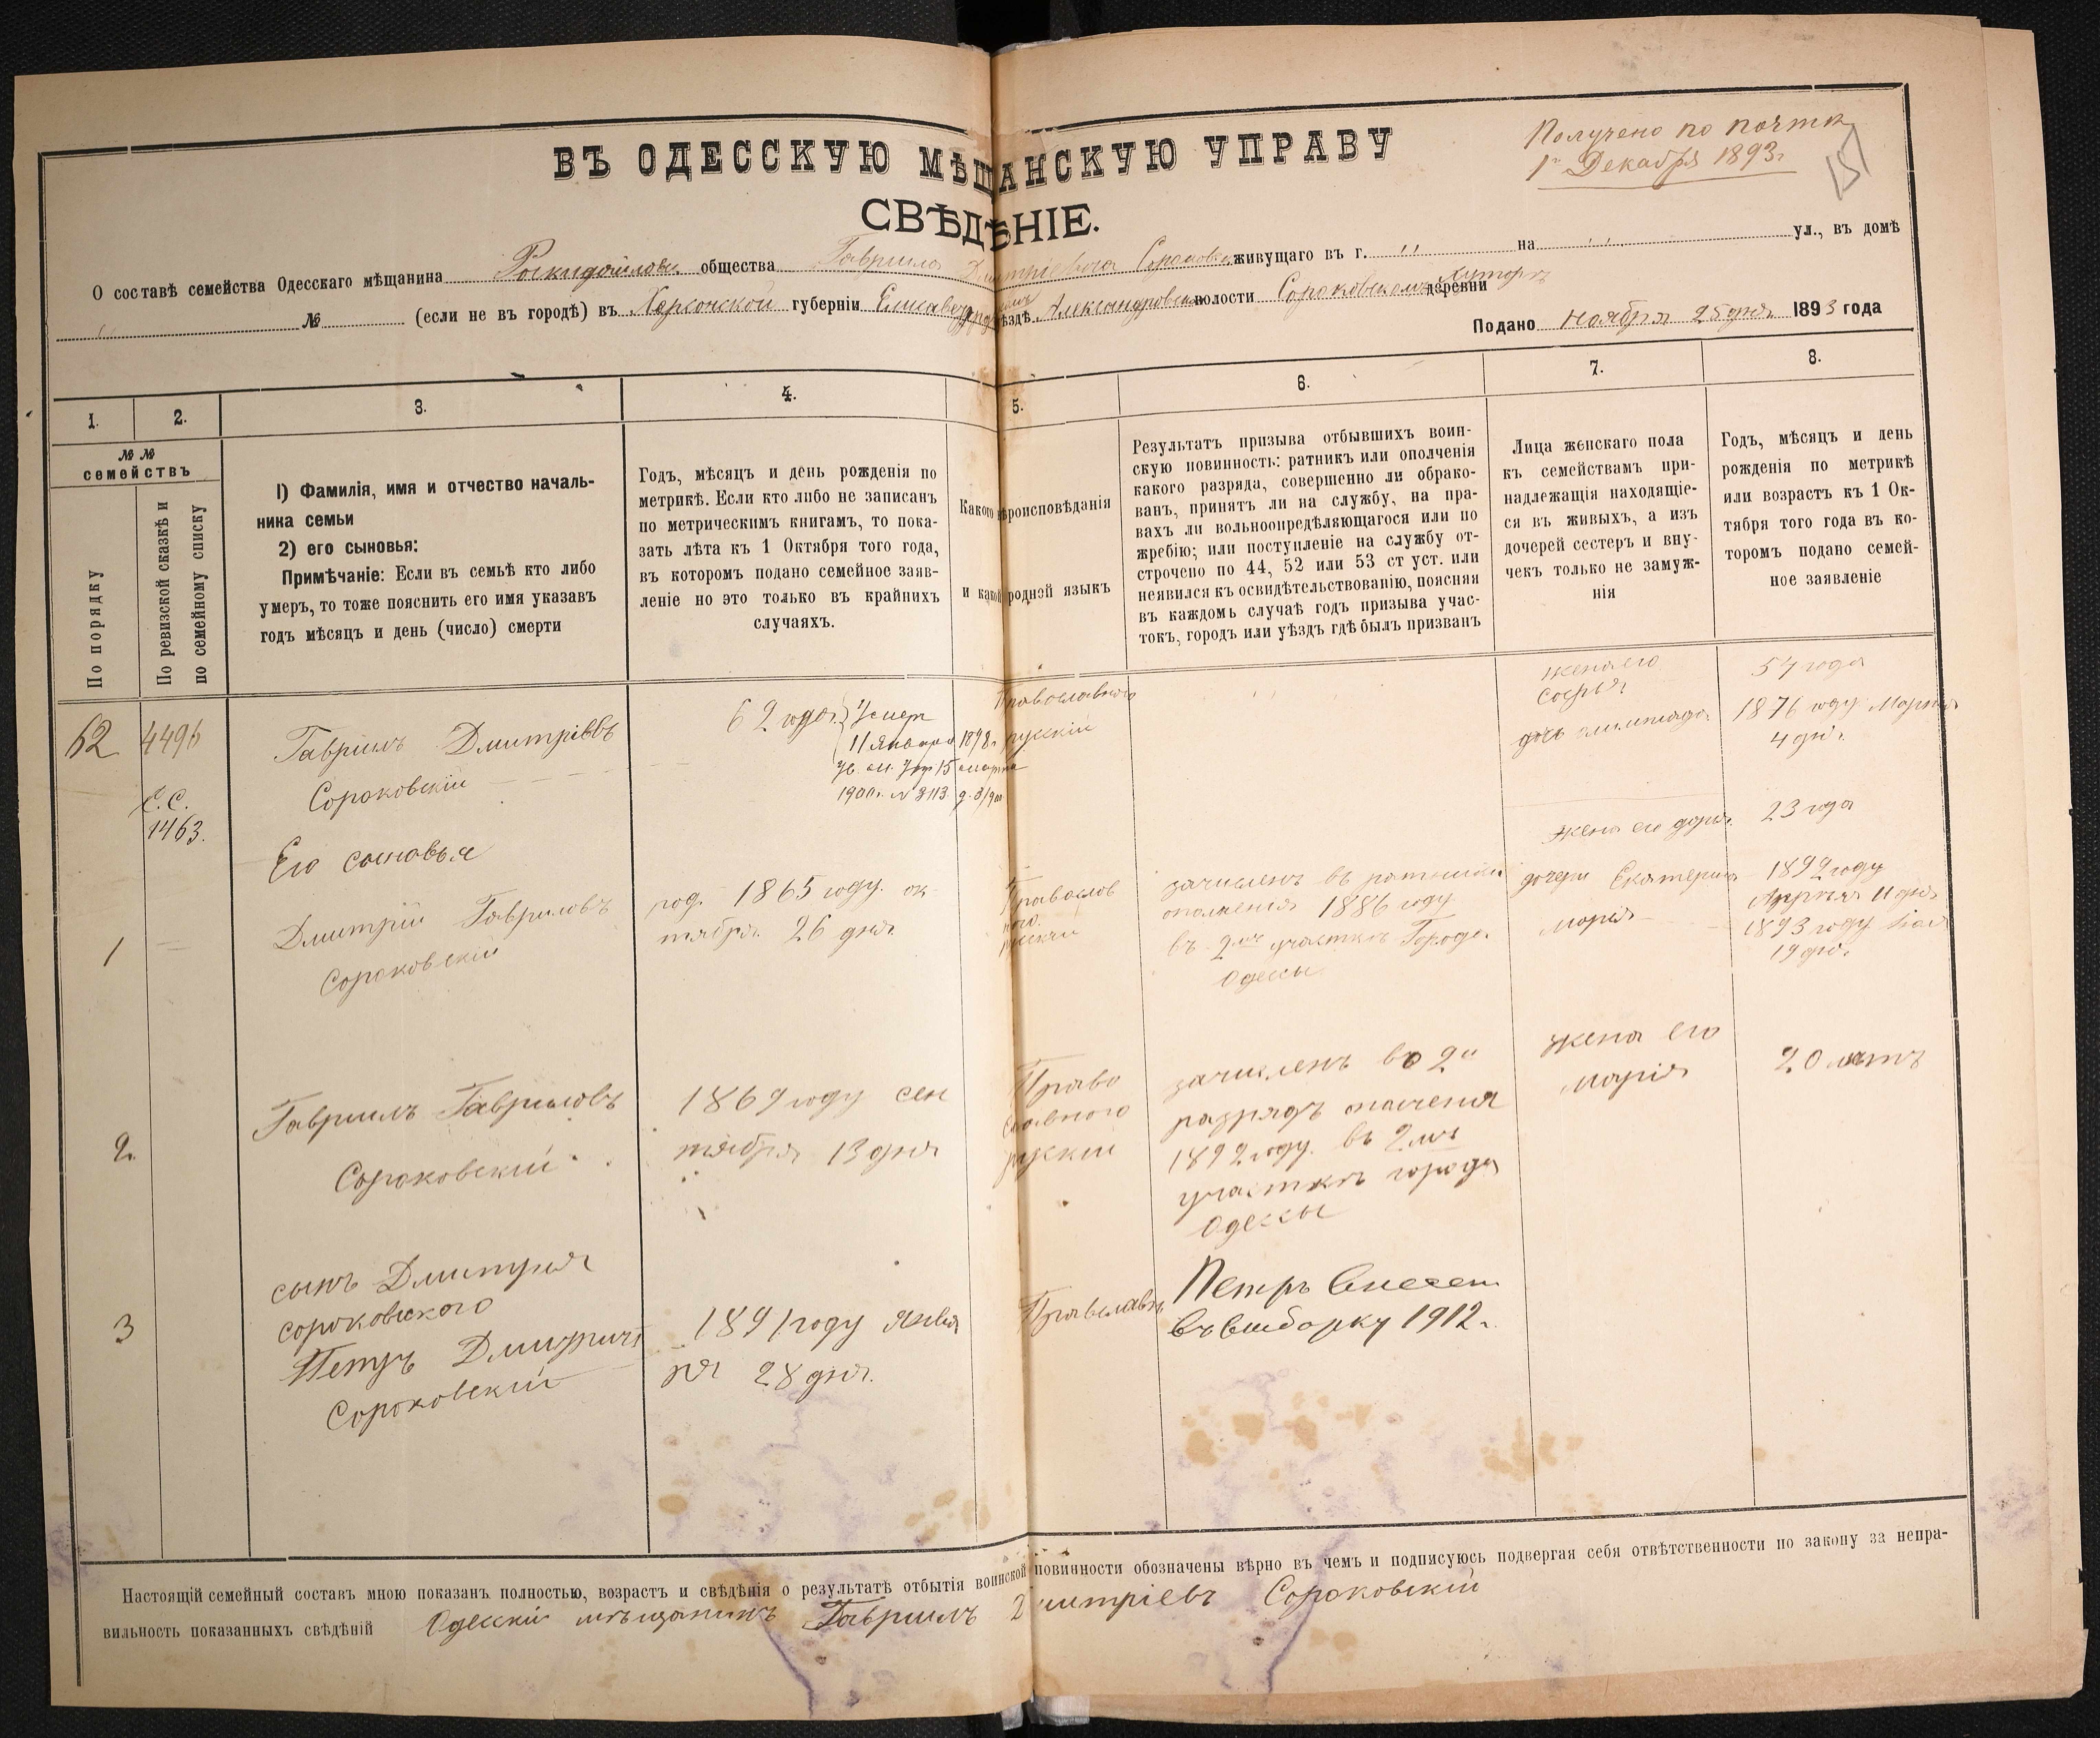 ВЪ ОДЕССКУЮ МѢЩАНСКУЮ УПРАВУ
Получено по почтѣ
1го Декабря 1893г.
151
СВѢДѢНІЕ.
О составѣ семейства Одесскаго мѣщанина общества Гаврила Дмитріевича живущаго въ г. " на ул., въ домѣ
" № (если не въ городѣ) въ Херсонской губерніи Елисаветградскомъ уѣздѣ Александровской волости Сороковскомъ деревни Хуторѣ
Подано Ноября 25 дня 1893 года
1. 2. 3. 4. 5. 6. 7. 8.
№ №
семействъ
По порядку
По ревизской сказкѣ и
по семейному списку
1) Фамилія, имя и отчество началь-
ника семьи
2) его сыновья:
Примѣчаніе: Если въ семьѣ кто либо
умеръ, то тоже пояснить его имя указавъ
годъ мѣсяцъ и день (число) смерти
Годъ, мѣсяцъ и день рожденія по
метрикѣ. Если кто либо не записанъ
по метрическимъ книгамъ, то пока-
зать лѣта къ 1 Октября того года,
въ которомъ подано семейное заяв-
леніе но это только въ крайнихъ
случаяхъ.
Какого вѣроисповѣданія
и какой родной языкъ
Результатъ призыва отбывшихъ воин-
скую повинность: ратникъ или ополченія
какого разряда, совершенно ли обрако-
ванъ, принятъ ли на службу, на пра-
вахъ ли вольноопредѣляющагося или по
жребію; или поступленіе на службу от-
строчено по 44, 52 или 53 ст уст. или
неявился къ освидѣтельствованію, поясняя
въ каждомъ случаѣ годъ призыва учас-
токъ, городъ или уѣздъ гдѣ былъ призванъ
Лица женскаго пола
къ семействамъ при-
надлежащія находящіе-
ся въ живыхъ, а изъ
дочерей сестеръ и вну-
чекъ только не замуж-
нія
Годъ, мѣсяцъ и день
рожденія по метрикѣ
или возрастъ къ 1 Ок-
тября того года въ ко-
торомъ подано семей-
ное заявленіе
62 4496
С.С.
1463.
Гаврiилъ Дмитріевъ
Сороковскій
62 года
Умер
11 Января 1898г.
15 марта
1900г. № 3113
Православнаго
русскій
жена его
Софья
57 года
1876 году Марта
4 дня
Его сыновья
1
Дмитрій Гавриловъ
Сороковскій
род. 1865 году ок-
тября 26 дня
Православ
наго
русскій
зачисленъ въ ратники
ополченія 1886 году
въ 2мъ участкѣ Города
Одессы
жена его Дарья
23 года
дочери Екатерина
1892 году
Апрѣля 11 дня
Марія
1893 году
19 дня
2.
Гаврiилъ Гавриловъ
Сороковскій
1869 году сен
тября 13 дня
Право
славного
русскій
зачисленъ во 2й
разрядъ ополченія
1892 году въ 2мъ
участкѣ города
Одессы
жена его
Марія
20 лѣтъ
3
сынъ Дмитрия
Сороковского
Петръ Дмитричъ
Сороковскій
1891 году Янва
ря 28 дня.
Православн
Петръ внесен
въ выборку 1912г.
Настоящій семейный составъ мною показанъ полностью, возрастъ и свѣдѣнія о результатѣ отбытія воинской повинности обозначены вѣрно въ чемъ и подписуюсь подвергая себя отвѣтственности по закону за непра-
вильность показанныхъ свѣдѣній Одесскій мѣщанинъ Гаврiилъ Дмитріевъ Сороковскій